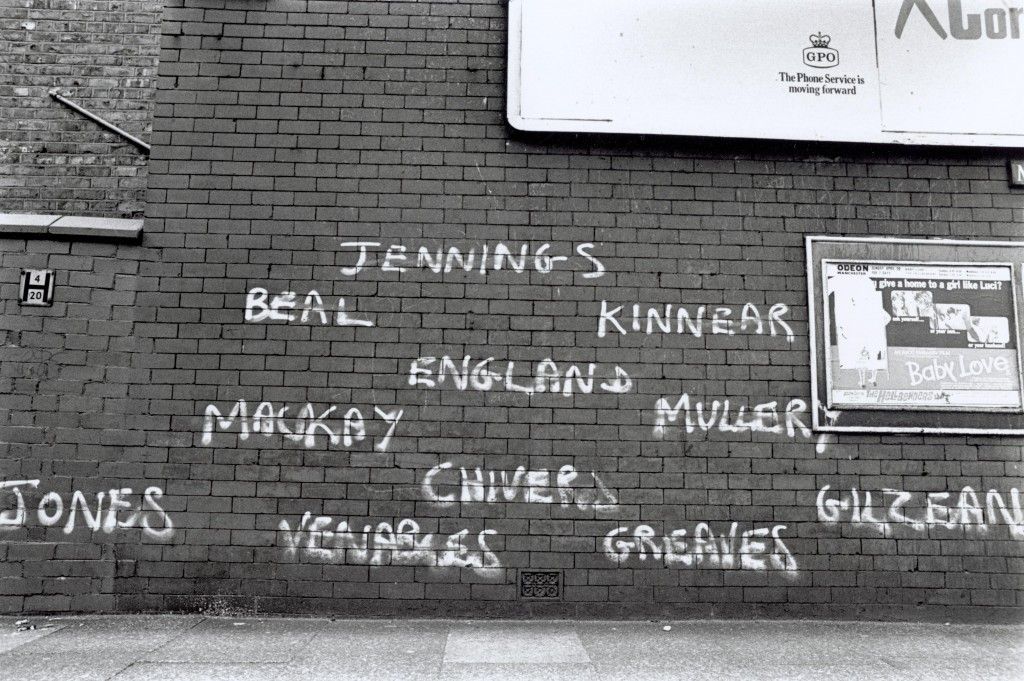 GPO
The Phone Service is
moving forward
4
H
20
JENNINGS
BEAL KINNEAR
ENGLAND
MACKAY MULLERY
CHIVERS
JONES GILZEAN
VENABLES GREAVES
ODEON
MANCHESTER
give a home to a girl like Luci?
Baby Love
THE HELLBENDERS